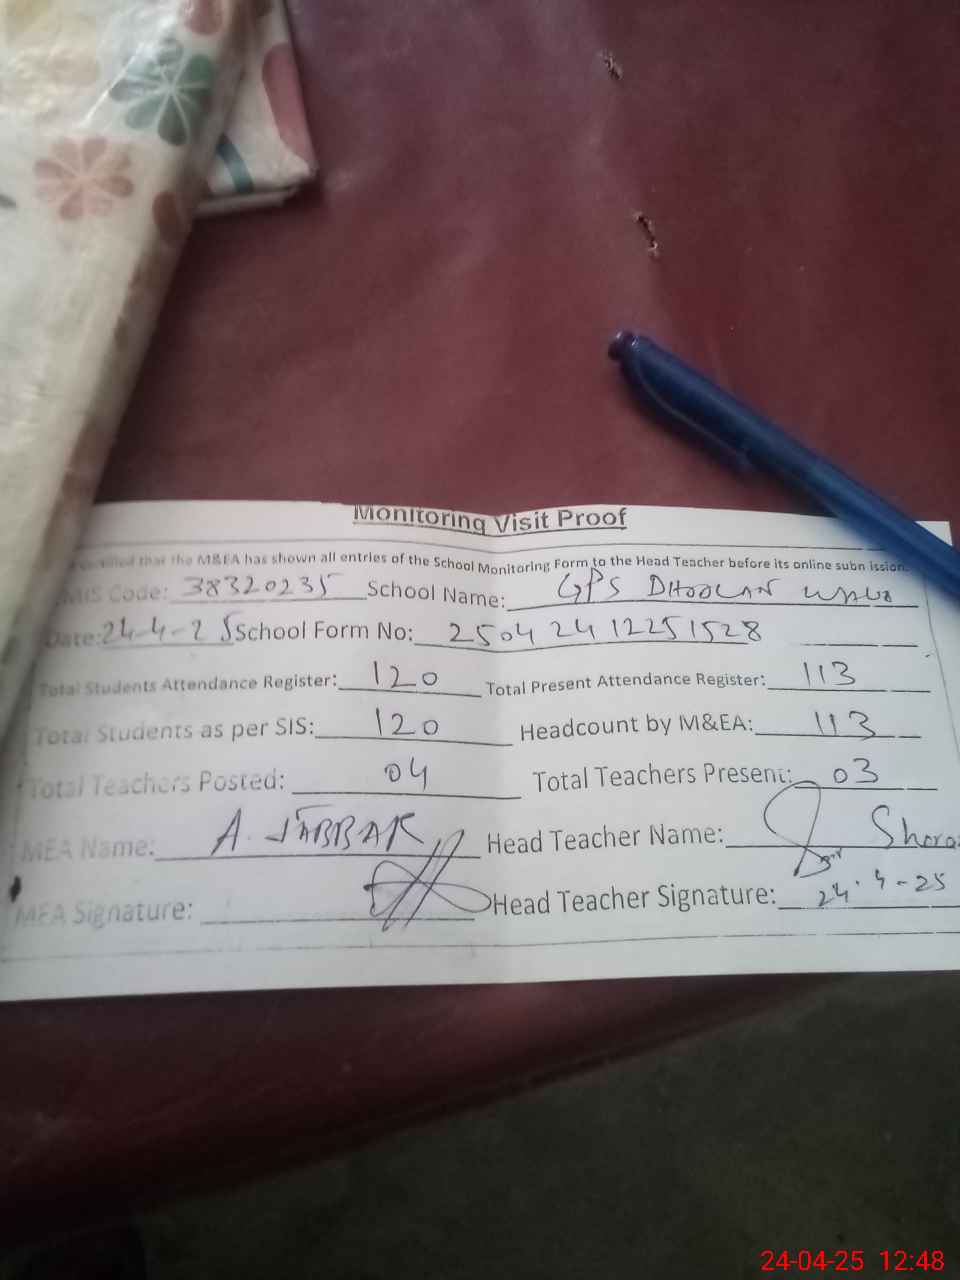 Monitoring Visit Proof
that the M&EA has shown all entries of the School Monitoring Form to the Head Teacher before its online submission.
EMIS Code: 38320235 School Name: GPS DHOOLAN WALA
Date: 24-4-25 School Form No: 2504241225 1528
Total Students Attendance Register: 120 Total Present Attendance Register: 113
Total Students as per SIS: 120 Headcount by M&EA: 113
Total Teachers Posted: 04 Total Teachers Present: 03
MEA Name: A. JABBAR Head Teacher Name:
MEA Signature: Head Teacher Signature: 24.4-25
24-04-25 12:48